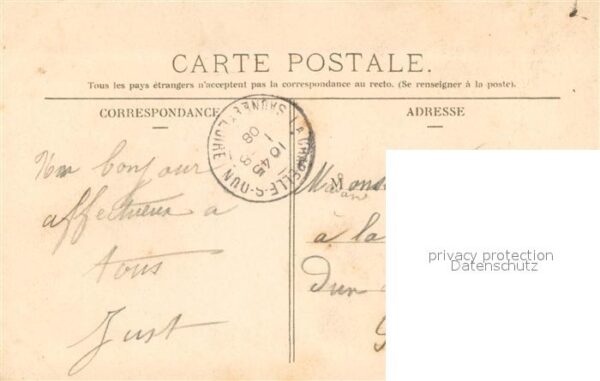 CARTE POSTALE.
Tous les pays étrangers n'acceptent pas la correspondance au recto. (Se renseigner à la poste).
CORRESPONDANCE
ADRESSE
LA CHAPELLE-S-DUN
SAÔNE-ET-LOIRE
10 45
08
Un bonjour
affectueux a
tous
Just
à la
Dun
privacy protection
Datenschutz